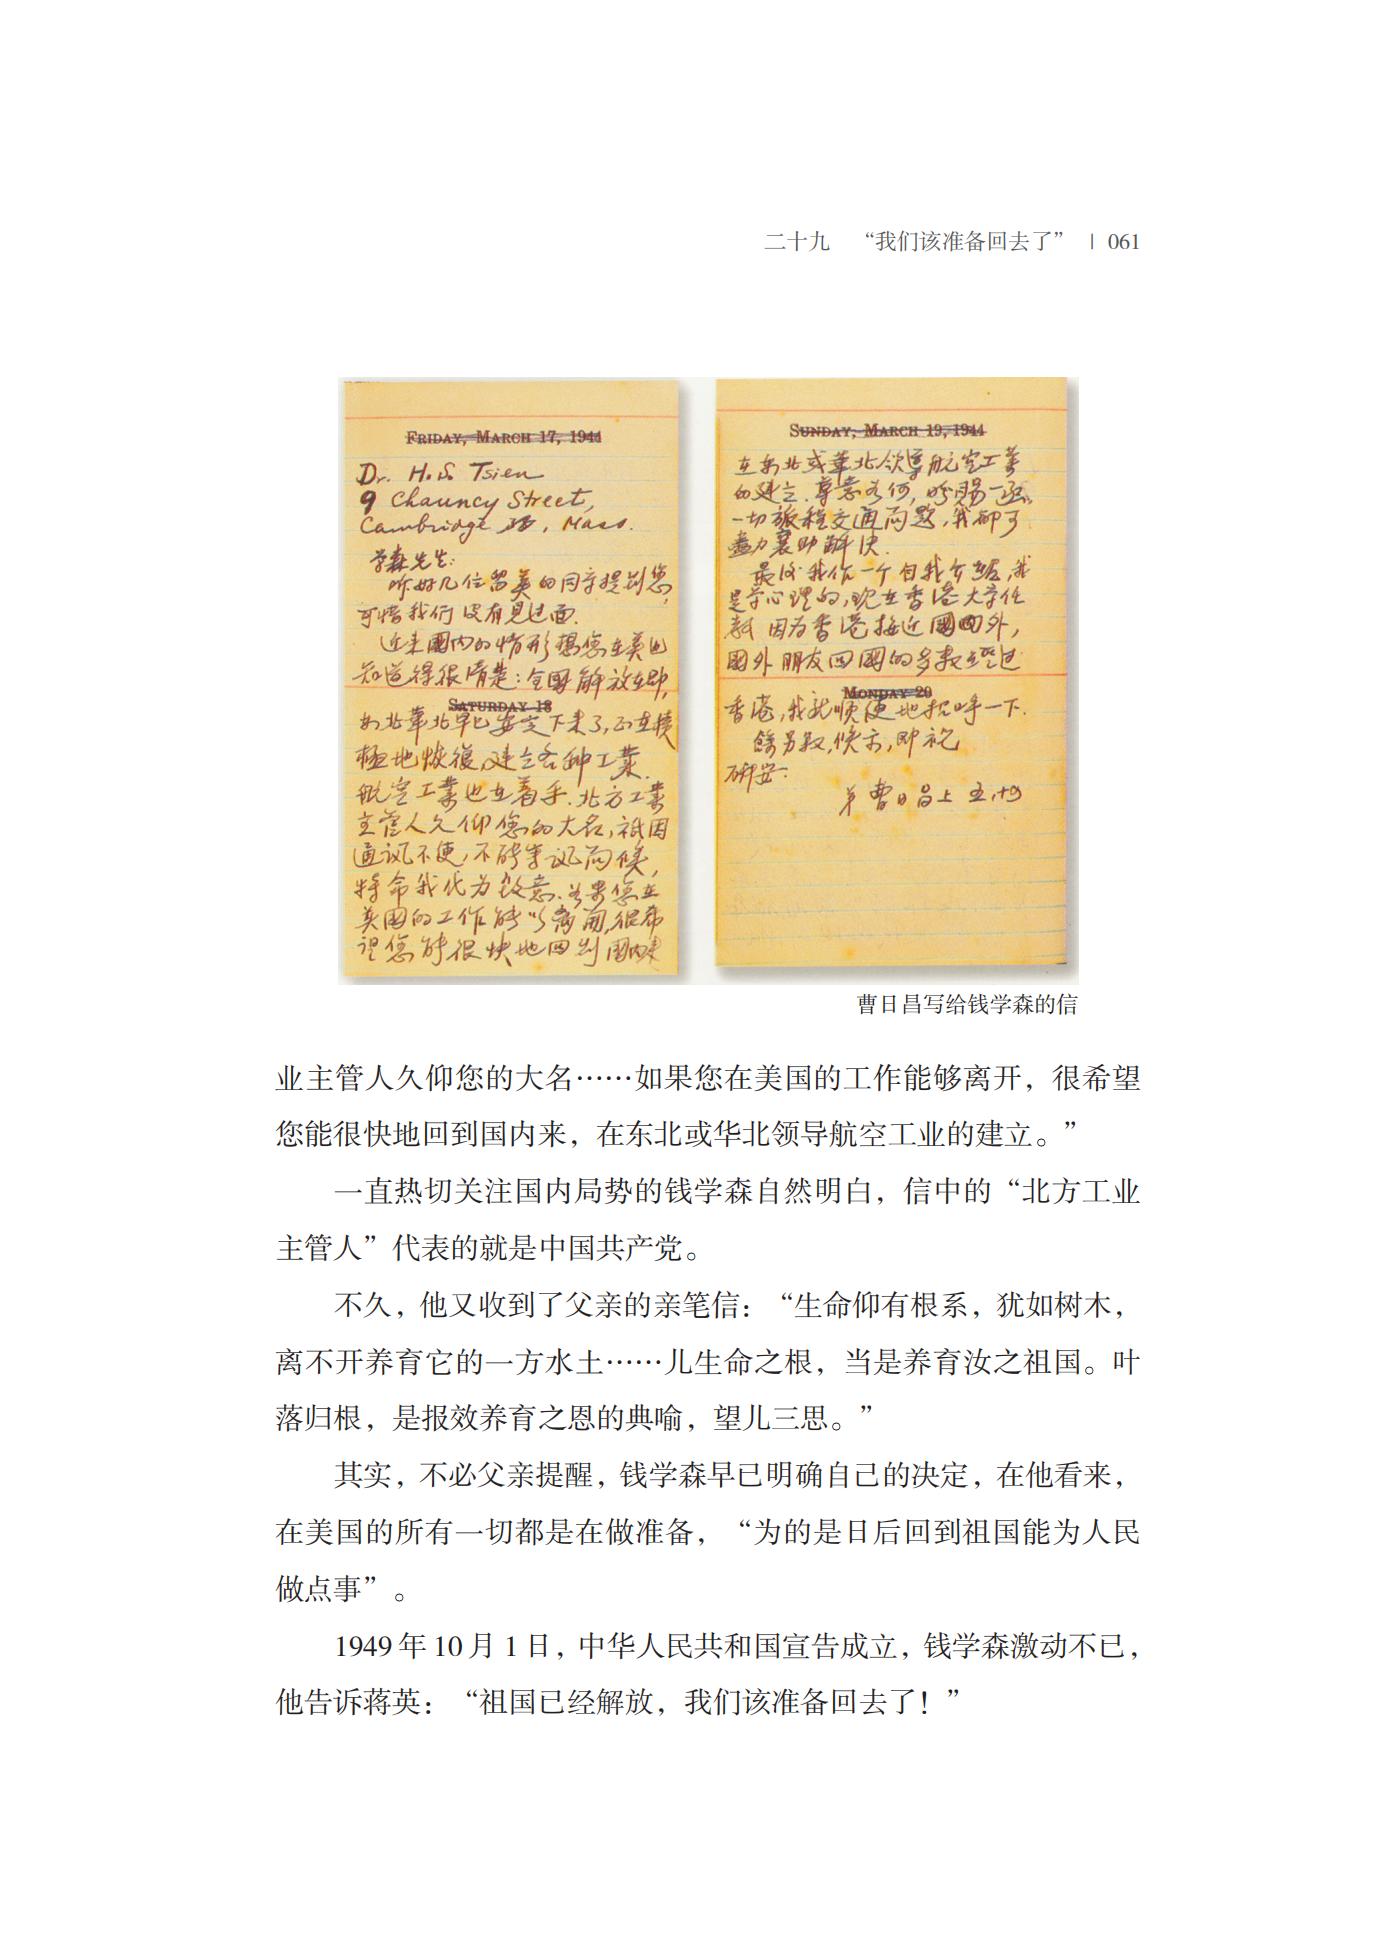 二十九 “我们该准备回去了” | 061
FRIDAY, MARCH 17, 1944
Dr. H.S. Tsien
9 Chauncy Street,
Cambridge, Mass.
学森先生:
听好几位留美的同学提到您,
可惜我们没有见过面.
近来國内的情形想您在美也
知道得很清楚:全國解放在即,
SATURDAY 18
东北華北早已安定下来了,正在積
極地恢復,建立各种工業.
航空工業也在着手.北方工業
主管人久仰您的大名,祇因
通訊不便,不能青訊问候,
特命我代为致意.如果您在
美國的工作能够离開,很希
望您能很快地回到國内来
SUNDAY, MARCH 19, 1944
在东北或華北领導航空工業
的建立.尊意如何,盼賜一函.
一切旅程交通问题,我都可
盡力襄助解决.
最后我作一个自我介紹,我
是学心理的,現在香港大学任
教 因为香港接近國内外,
國外朋友回國的多数經过
MONDAY 20
香港,我就順便地招呼一下.
餘另叙,候示,即祝
研安:
弟 曹日昌上 五,十四
曹日昌写给钱学森的信
业主管人久仰您的大名……如果您在美国的工作能够离开，很希望
您能很快地回到国内来，在东北或华北领导航空工业的建立。”
一直热切关注国内局势的钱学森自然明白，信中的“北方工业
主管人”代表的就是中国共产党。
不久，他又收到了父亲的亲笔信：“生命仰有根系，犹如树木，
离不开养育它的一方水土……儿生命之根，当是养育汝之祖国。叶
落归根，是报效养育之恩的典喻，望儿三思。”
其实，不必父亲提醒，钱学森早已明确自己的决定，在他看来，
在美国的所有一切都是在做准备，“为的是日后回到祖国能为人民
做点事”。
1949 年 10 月 1 日，中华人民共和国宣告成立，钱学森激动不已，
他告诉蒋英：“祖国已经解放，我们该准备回去了！”